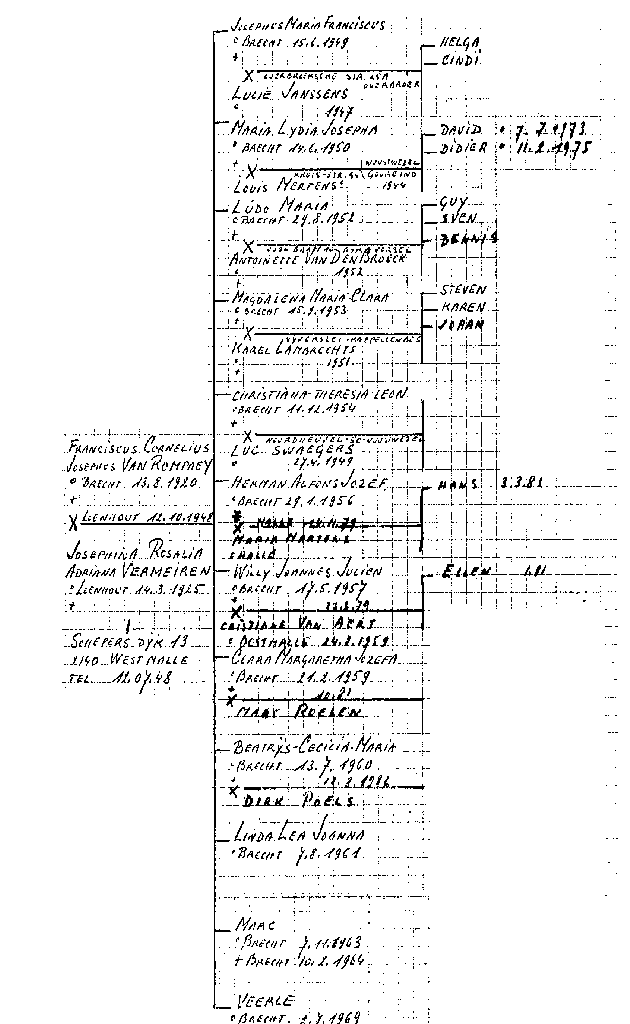 Franciscus Cornelius
Josephus Van Rompaey
° Brecht 13.8.1920
+
X Loenhout 12.10.1948
Josephina Rosalia
Adriana Vermeiren
° Loenhout 14.3.1925
+
Schepers Dyk 13
2140 Westmalle
Tel. 12.07.48
Josephus Maria Franciscus
° Brecht 15.6.1949
+
X
Lucie Janssens
° 1947
Helga
Cindi
Maria Lydia Josepha
° Brecht 14.6.1950
+
X
Louis Mertens
1944
David ° 7.7.1973
Didier ° 11.2.1975
Ludo Maria
° Brecht 29.8.1952
+
X
Antoinette Van Den Broeck
° 1952
+
Guy
Sven
Dennis
Magdalena Maria Clara
° Brecht 15.9.1953
+
X
Karel Lambrechts
° 1951
+
Steven
Karen
Johan
Christiana Theresia Leon
° Brecht 11.12.1954
+
X
Luc Swaegers
° 27.4.1949
+
Herman Alfons Jozef
° Brecht 29.1.1956
X
Maria Martens
Hans 3.3.81
Willy Joannes Julien
° Brecht 17.5.1957
X
Cristiane Van Aert
° Oostmalle 24.2.1959
Ellen
Clara Margaretha Jozefa
° Brecht 21.2.1959
+
X
Marc Roelen
Beatrys-Cecilia-Maria
° Brecht 13.7.1960
X
Dirk Poels
Linda Lea Joanna
° Brecht 7.8.1961
Marc
° Brecht 7.11.1963
+ Brecht 10.2.1964
Veerle
° Brecht 2.7.1969